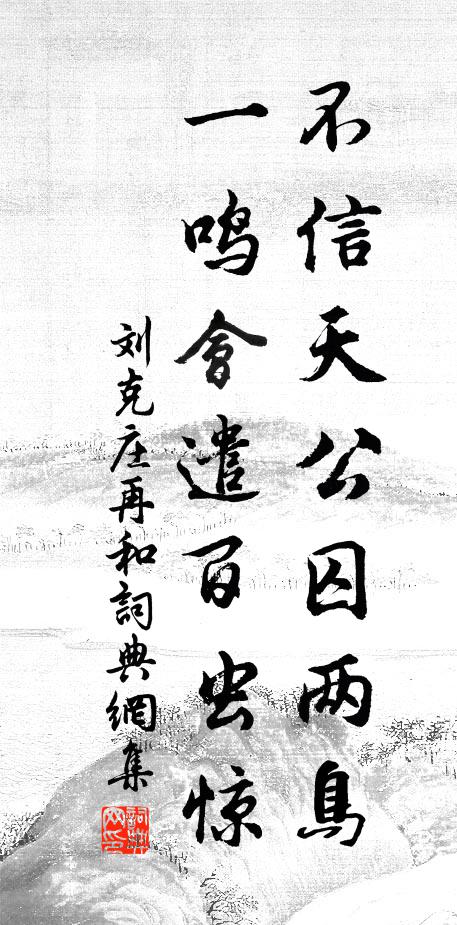 不信天公囚两鳥
一鸣會遣百虫惊
刘克庄再和詞典網集